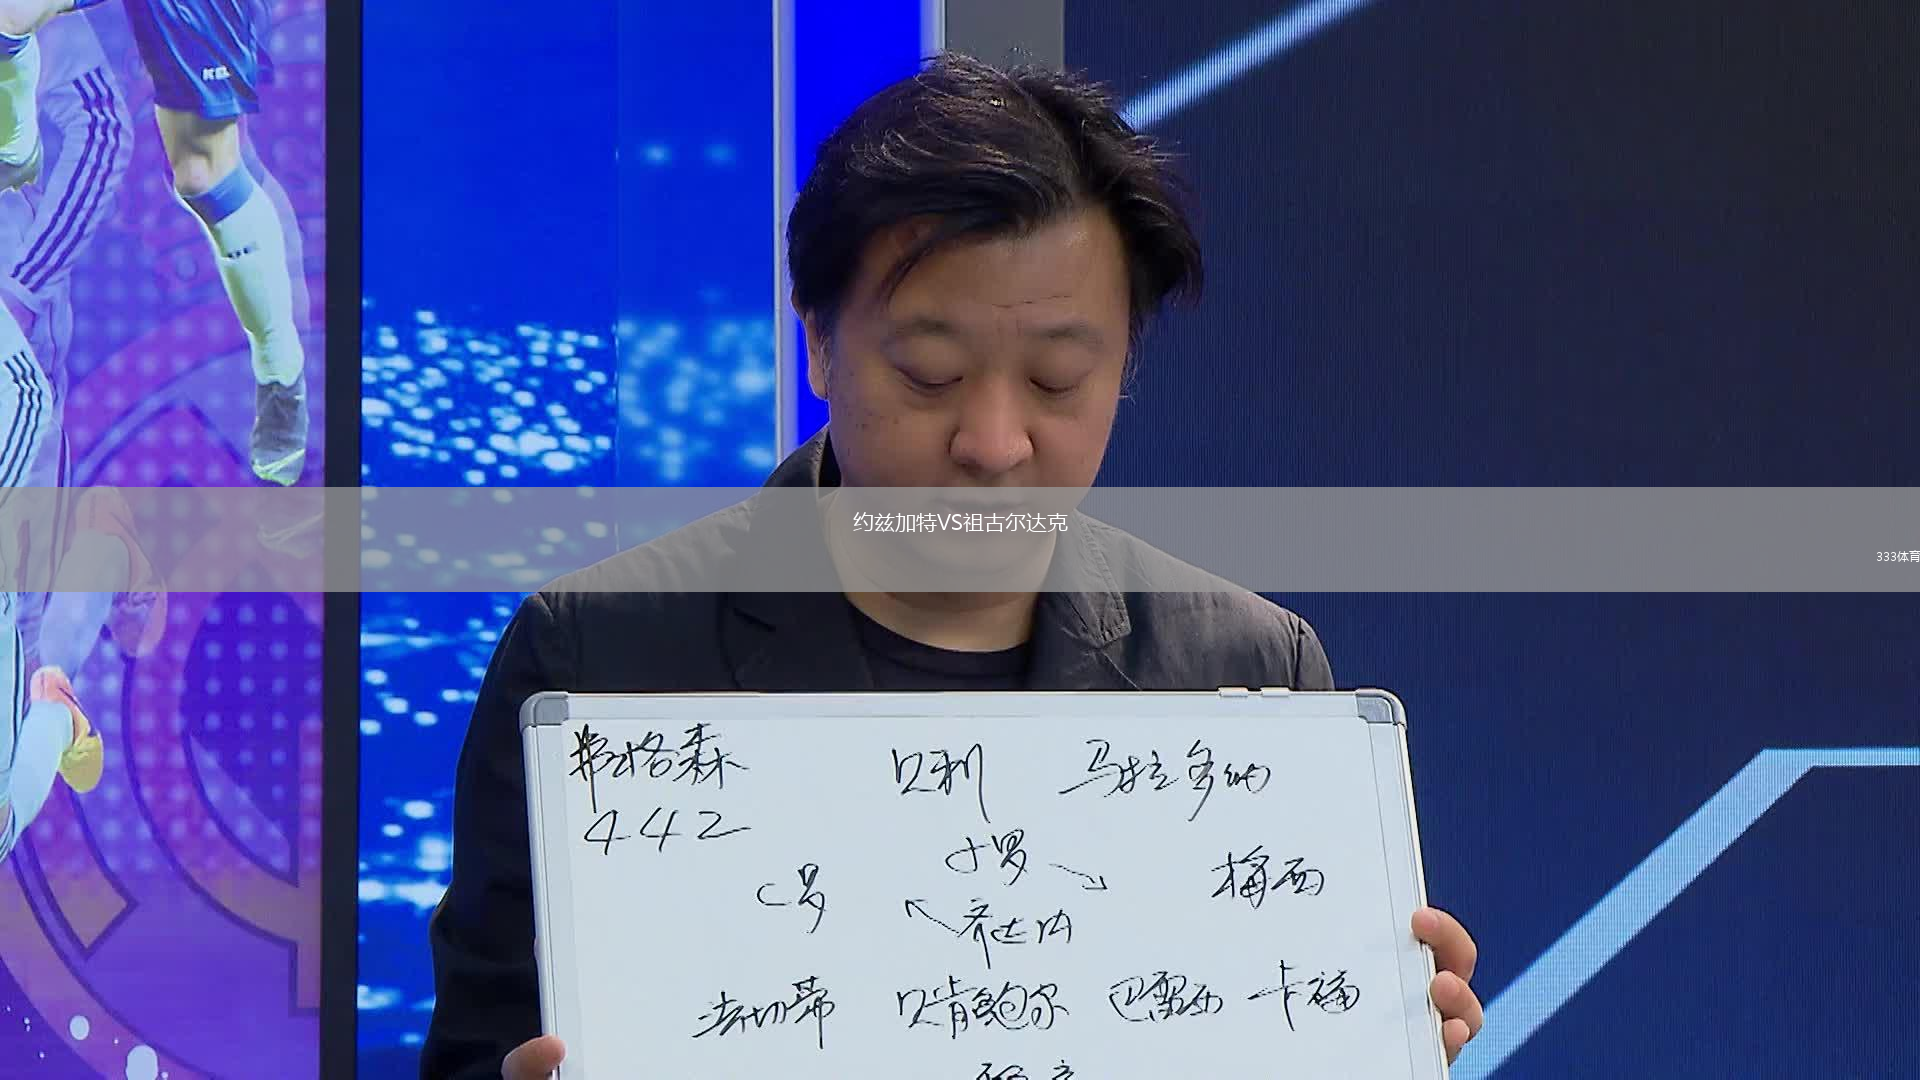 约兹加特VS祖古尔达克
333体育
弗格森 贝利 马拉多纳
442
小罗
C罗 梅西
齐达内
法切蒂 贝肯鲍尔 巴雷西 卡福